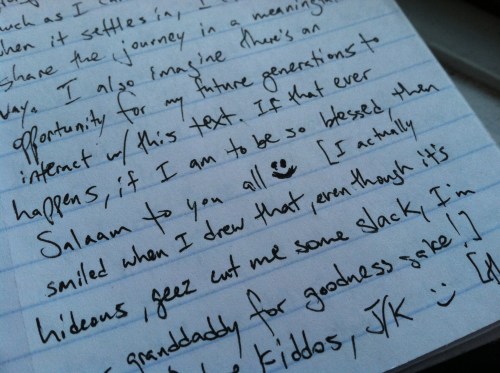 much as I
when it settles in, I
share the journey in a meaningful
way. I also imagine there's an
opportunity for my future generations to
interact w/ this text. If that ever
happens, if I am to be so blessed, then
Salaam to you all [I actually
smiled when I drew that, even though it's
hideous, geez cut me some slack, I'm
granddaddy for goodness sake!]
kiddos, J/K